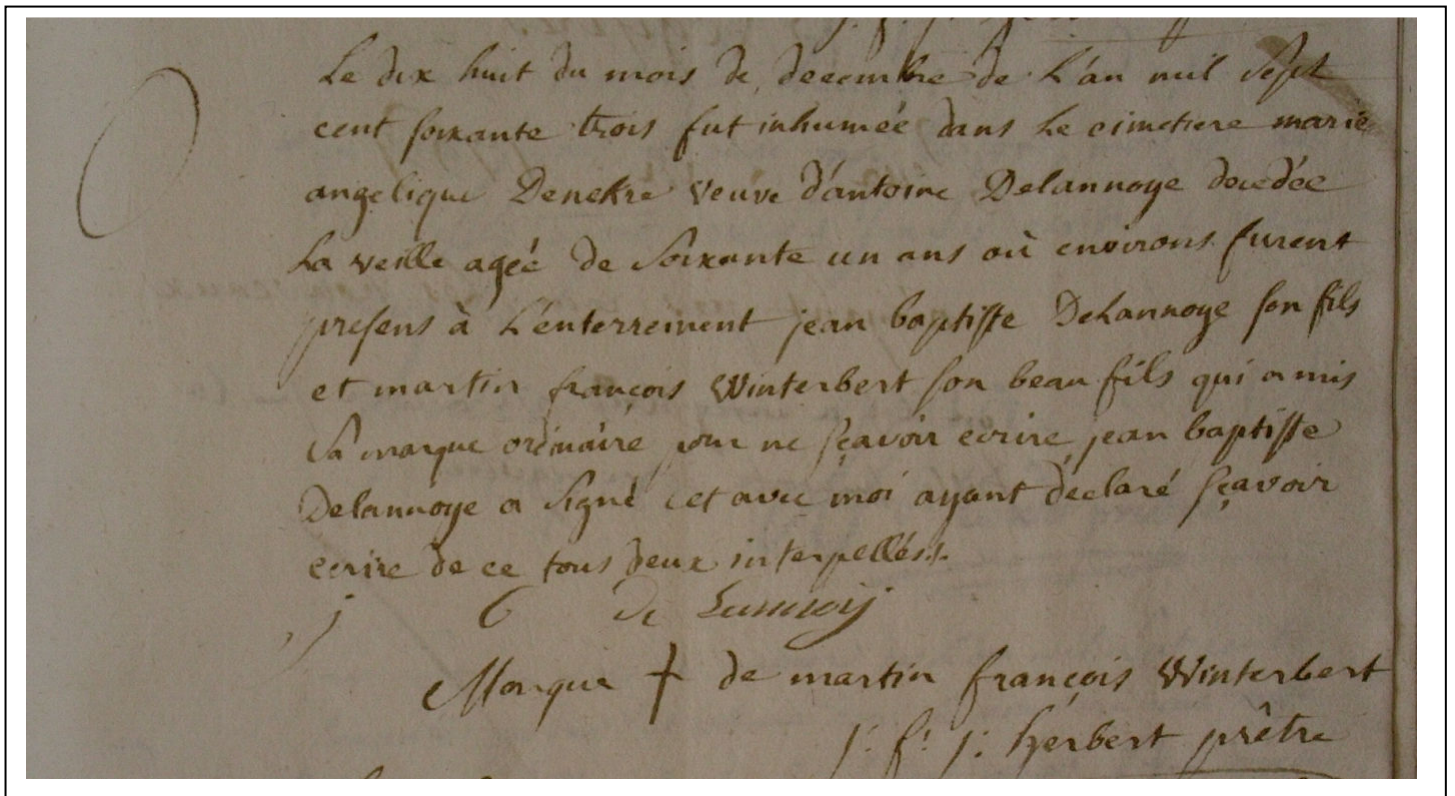 Le dix huit du mois de decembre de L'an mil sept
cent soixante trois fut inhumée dans Le cimetiere marie
angelique Denekre veuve d'antoine Delannoye decedée
La veille agée de soixante un ans où environs furent
presens à L'enterrement jean baptiste DeLannoye son fils
et martin françois Winterbert son beau fils qui a mis
sa marque ordinaire pour ne sçavoir ecrire jean baptiste
Delannoye a signé cet avec moi ayant déclaré sçavoir
ecrire de ce tous deux interpellés.
j b de Lannoij
Marque + de martin françois Winterbert
j: f: j: herbert prêtre